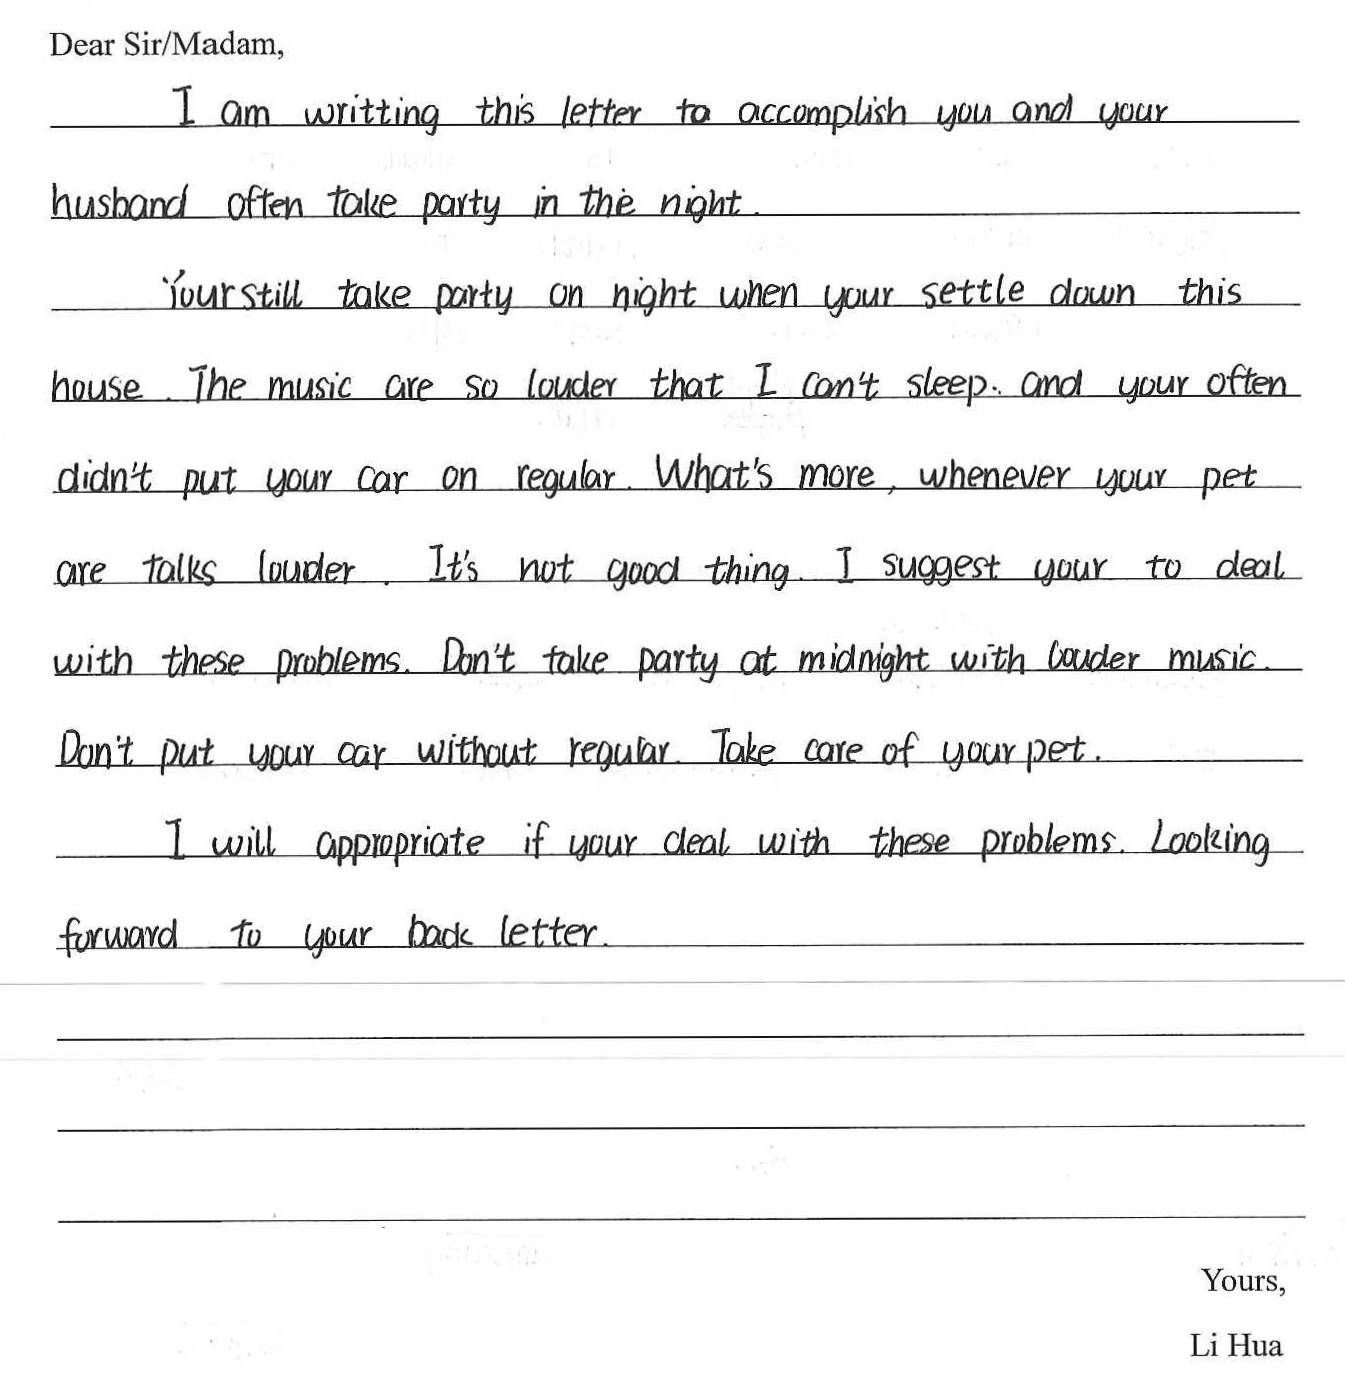 Dear Sir/Madam,
I am writting this letter to accomplish you and your
husband often take party in the night.
Your still take party on night when your settle down this
house. The music are so louder that I can't sleep. and your often
didn't put your car on regular. What's more, whenever your pet
are talks louder. It's not good thing. I suggest your to deal
with these problems. Don't take party at midnight with louder music.
Don't put your car without regular. Take care of your pet.
I will appropriate if your deal with these problems. Looking
forward to your back letter.
Yours,
Li Hua